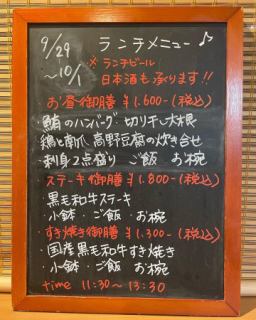 9/29 ランチメニュー♪
~10/1 ※ランチビール
日本酒も承ります!!
お昼御膳 ¥1.600-(税込)
・鮪のハンバーグ 切り干大根
鶏と南瓜 高野豆腐の炊き合せ
・刺身2点盛り ご飯 お椀
ステーキ御膳 ¥1.800-(税込)
・黒毛和牛ステーキ
・小鉢・ご飯 お椀
すき焼き御膳 ¥1.300-(税込)
・国産黒毛和牛すき焼き
・小鉢・ご飯 お椀
time 11:30~13:30